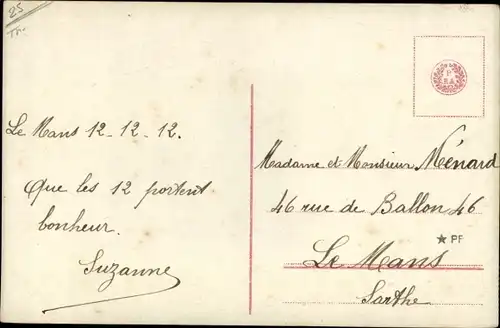 25
Le Mans 12-12-12.
Que les 12 portent
bonheur.
Suzanne
Madame et Monsieur Ménard
46 rue de Ballon 46
★ PF
Le Mans
Sarthe